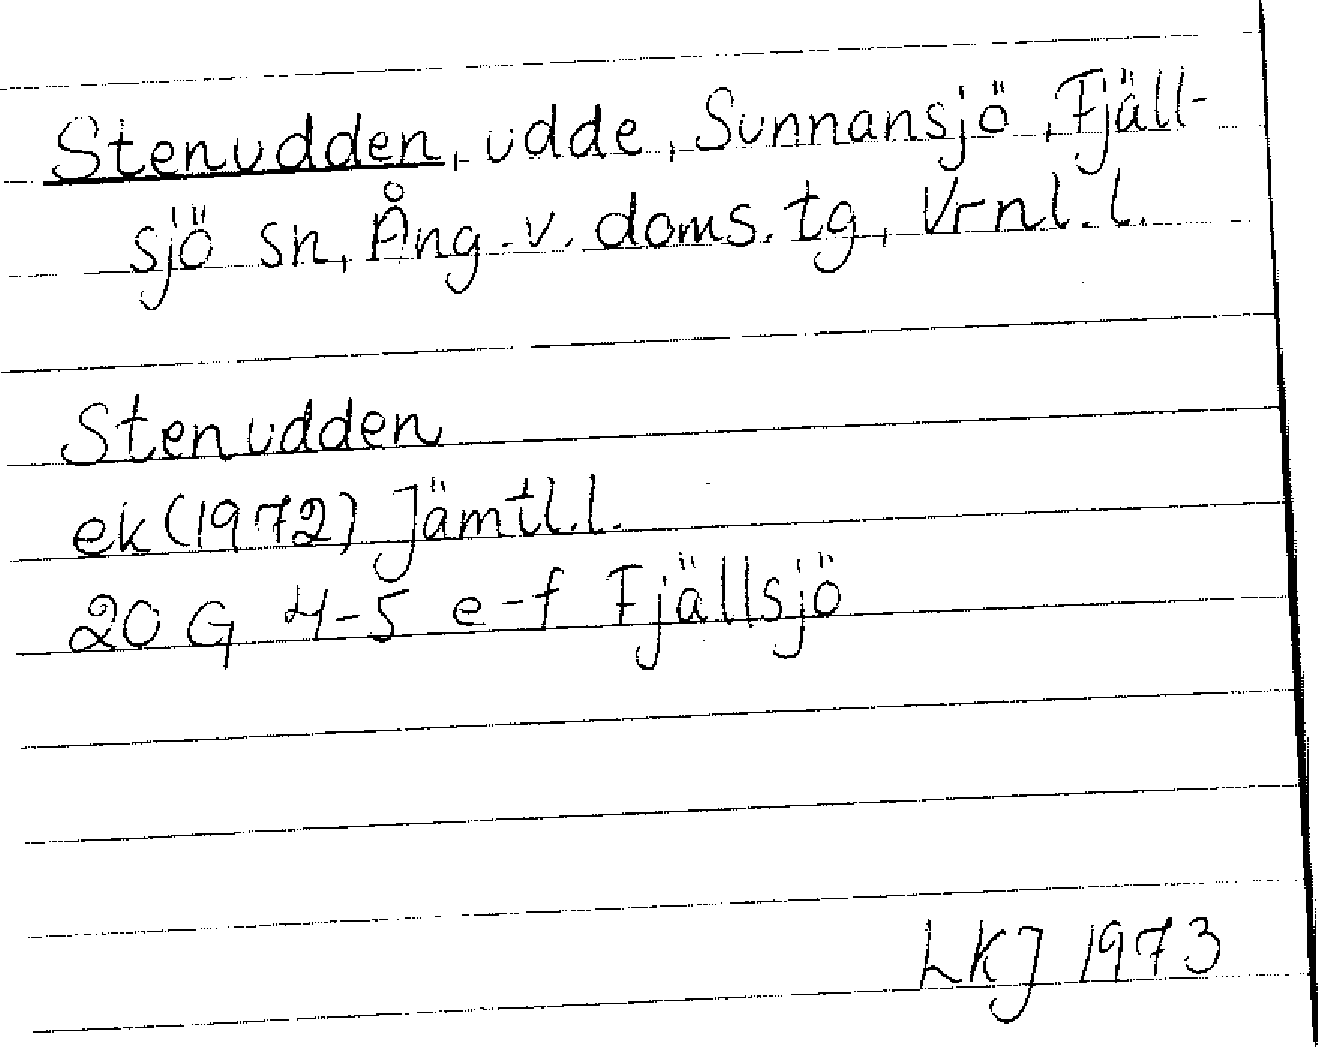 Stenudden, udde, Sunnansjö, Fjäll-
sjö sn, Ång. v. doms. tg, Vrnl. l.
Stenudden
ek (1972) Jämtl. l.
20 G 4-5 e-f Fjällsjö
LKJ 1973